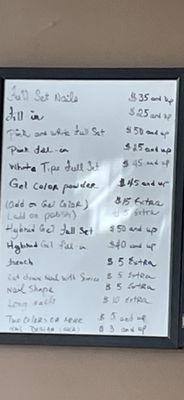 Full Set Nails $35 and up
fill in $25 and up
Pink and white Full Set $50 and up
Pink fill-in $25 and up
White Tips Full Set $45 and up
Gel Color powder $45 and up
(add on Gel Color) $15 Extra
(add on polish) $5 Extra
Hybrid Gel Full Set $50 and up
Hybrid Gel fill-in $40 and up
french $5 Extra
Cut down Nail with Service $5 Extra
Nail Shape $5 Extra
Long nails $10 Extra
Two Colors or more $5 and up
Nail Design (each) $3 and up